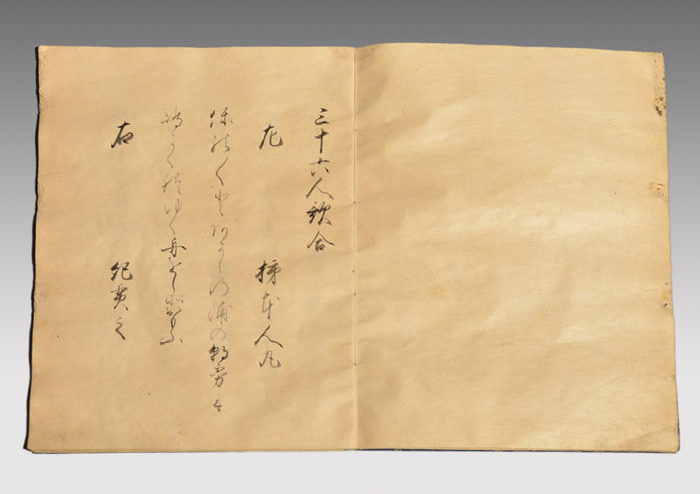 三十六人歌合
左　柿本人丸
ほの〱とあかしの浦の朝霧に
嶋かくれゆく舟をしそおもふ
右　紀貫之